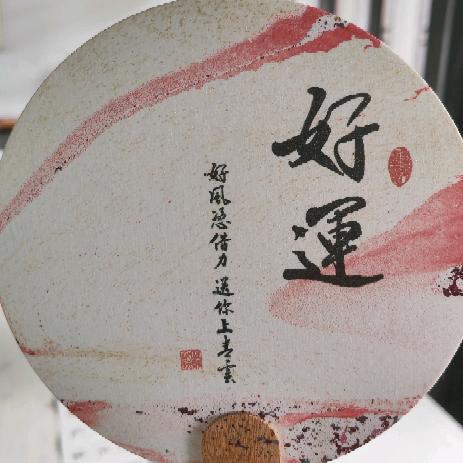 好運
好風憑借力 送你上青雲